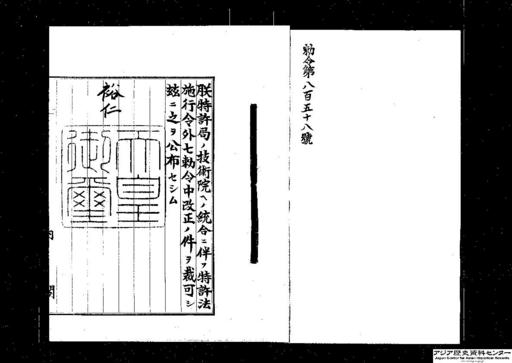 勅令第八百五十八號
朕特許局ノ技術院ヘノ統合ニ伴フ特許法
施行令外七勅令中改正ノ件ヲ裁可シ
玆ニ之ヲ公布セシム
裕仁
天皇
御璽
内閣
アジア歴史資料センター
Japan Center for Asian Historical Records